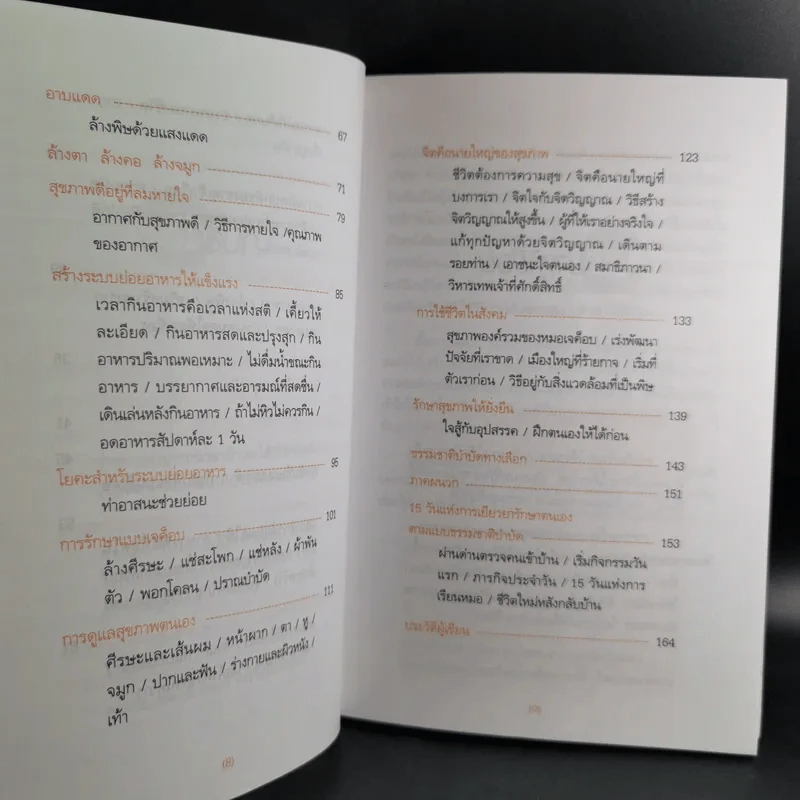 อาบแดด
ล้างพิษด้วยแสงแดด 67
ล้างตา ล้างคอ ล้างจมูก 71
สุขภาพดีอยู่ที่ลมหายใจ 79
อากาศกับสุขภาพดี / วิธีการหายใจ /คุณภาพ
ของอากาศ
สร้างระบบย่อยอาหารให้แข็งแรง 85
เวลากินอาหารคือเวลาแห่งสติ / เคี้ยวให้
ละเอียด / กินอาหารสดและปรุงสุก / กิน
อาหารปริมาณพอเหมาะ / ไม่ดื่มน้ำขณะกิน
อาหาร / บรรยากาศและอารมณ์ที่สดชื่น /
เดินเล่นหลังกินอาหาร / ถ้าไม่หิวไม่ควรกิน /
อดอาหารสัปดาห์ละ 1 วัน
โยคะสำหรับระบบย่อยอาหาร 95
ท่าอาสนะช่วยย่อย
การรักษาแบบเจค็อบ 101
ล้างศีรษะ / แช่สะโพก / แช่หลัง / ผ้าพัน
ตัว / พอกโคลน / ปราณบำบัด
การดูแลสุขภาพตนเอง 111
ศีรษะและเส้นผม / หน้าผาก / ตา / หู /
จมูก / ปากและฟัน / ร่างกายและผิวหนัง /
เท้า
(8)
จิตคือนายใหญ่ของสุขภาพ 123
ชีวิตต้องการความสุข / จิตคือนายใหญ่ที่
บงการเรา / จิตใจกับจิตวิญญาณ / วิธีสร้าง
จิตวิญญาณให้สูงขึ้น / ผู้ที่ให้เราอย่างจริงใจ /
แก้ทุกปัญหาด้วยจิตวิญญาณ / เดินตาม
รอยท่าน / เอาชนะใจตนเอง / สมาธิภาวนา /
วิหารเทพเจ้าที่ศักดิ์สิทธิ์
การใช้ชีวิตในสังคม 133
สุขภาพองค์รวมของหมอเจค็อบ / เร่งพัฒนา
ปัจจัยที่เราขาด / เมืองใหญ่ที่ร้ายกาจ / เริ่มที่
ตัวเราก่อน / วิธีอยู่กับสิ่งแวดล้อมที่เป็นพิษ
รักษาสุขภาพให้ยั่งยืน 139
ใจสู้กับอุปสรรค / ฝึกตนเองให้ได้ก่อน
ธรรมชาติบำบัดทางเลือก 143
ภาคผนวก 151
15 วันแห่งการเยียวยารักษาตนเอง
ตามแบบธรรมชาติบำบัด 153
ผ่านด่านตรวจคนเข้าบ้าน / เริ่มกิจกรรมวัน
แรก / ภารกิจประจำวัน / 15 วันแห่งการ
เรียนหมอ / ชีวิตใหม่หลังกลับบ้าน
ประวัติผู้เขียน 164
(9)